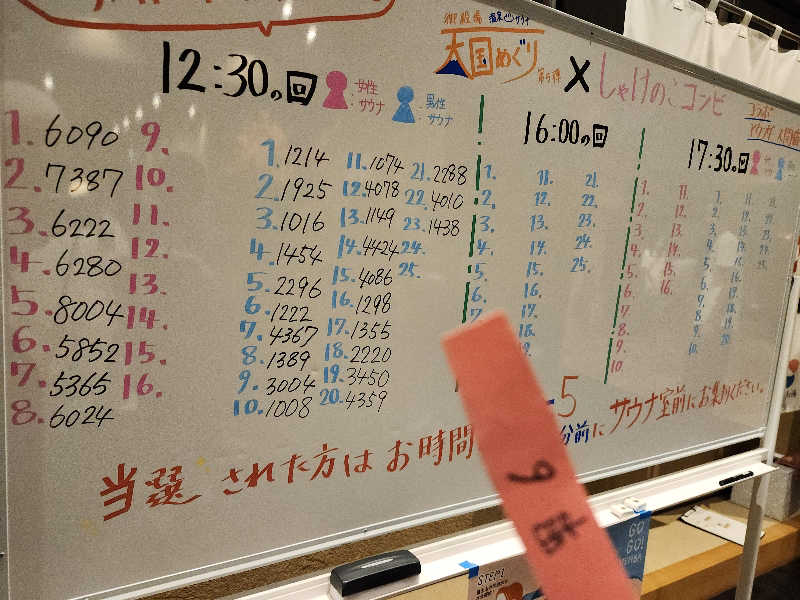 御殿場 温泉 サウナ
大国めぐり 第5弾 × しゃけのこコンビ
コラボ
12:30の回
女性サウナ
男性サウナ
1. 6090
2. 7387
3. 6222
4. 6280
5. 8004
6. 5852
7. 5365
8. 6024
9.
10.
11.
12.
13.
14.
15.
16.
1. 1214
2. 1925
3. 1016
4. 1454
5. 2296
6. 1222
7. 4367
8. 1389
9. 3004
10. 1008
11. 1074
12. 4078
13. 1149
14. 4424
15. 4086
16. 1298
17. 1355
18. 2220
19. 3450
20. 4359
21. 2288
22. 4010
23. 1438
24.
25.
16:00の回
1.
2.
3.
4.
5.
6.
7.
11.
12.
13.
14.
15.
16.
17.
18.
21.
22.
23.
24.
25.
17:30の回
1.
2.
3.
4.
5.
6.
7.
8.
9.
10.
11.
12.
13.
14.
15.
16.
当選された方はお時間 5分前にサウナ室前にお集りください。
STEP!
GO
GO!